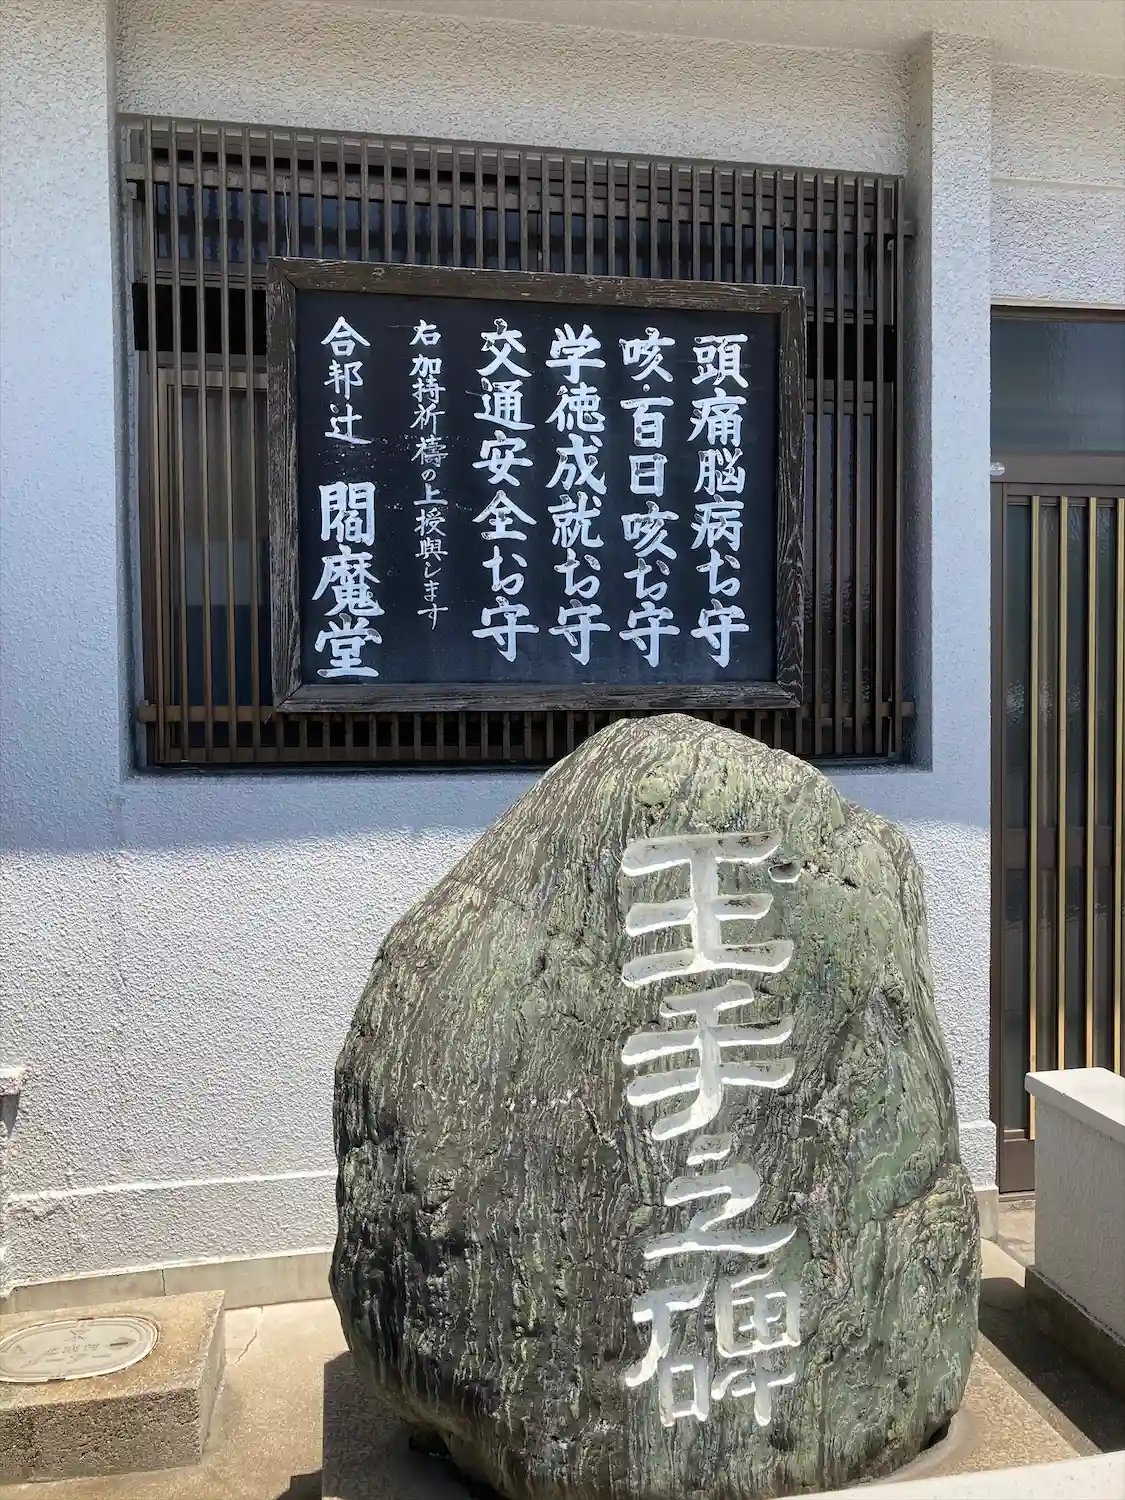 頭痛脳病お守
咳・百日咳お守
学徳成就お守
交通安全お守
右加持祈禱の上授與します
合邦辻 閻魔堂
王手之碑